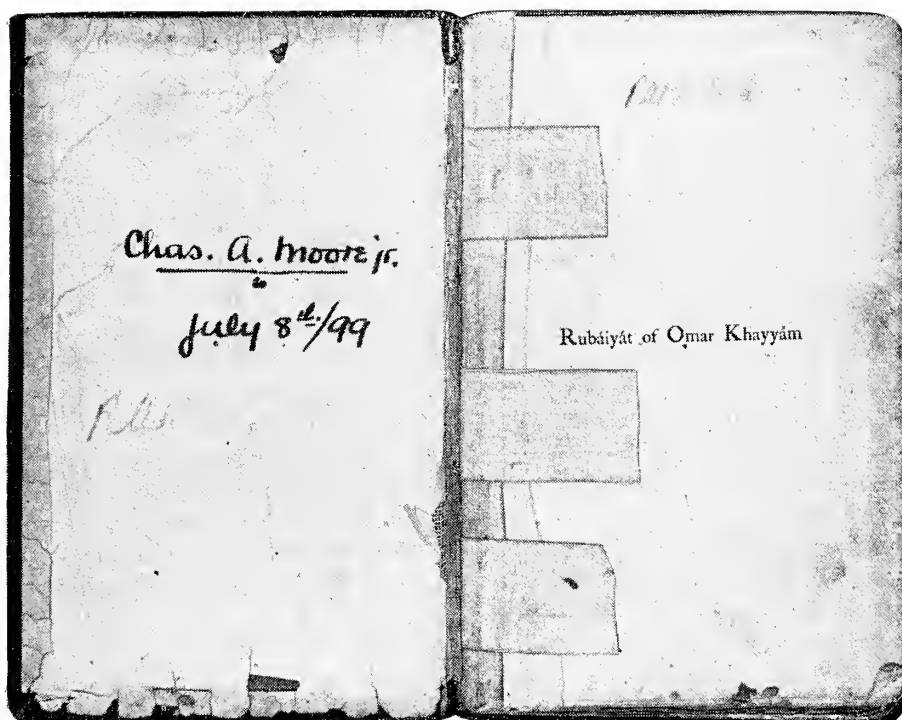 Chas. A. Moore jr.
July 8th/99
Rubáiyát of Omar Khayyám